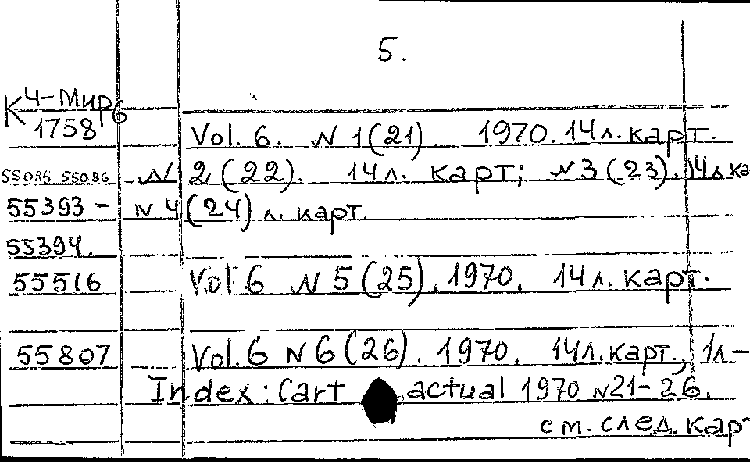 5.
К 4-Мир
6
1758 Vol. 6. N 1(21) 1970. 14л. карт.
55085 55086 N 2(22). 14л. карт; N3(23). 14л ка
55393 - N 4(24) л. карт.
55394.
55516 Vol 6 N 5(25). 1970. 14л. карт.
55807 Vol. 6 N 6(26). 1970. 14л. карт., 1л-
Index: Cart actual 1970 N21-26.
см. след. кар